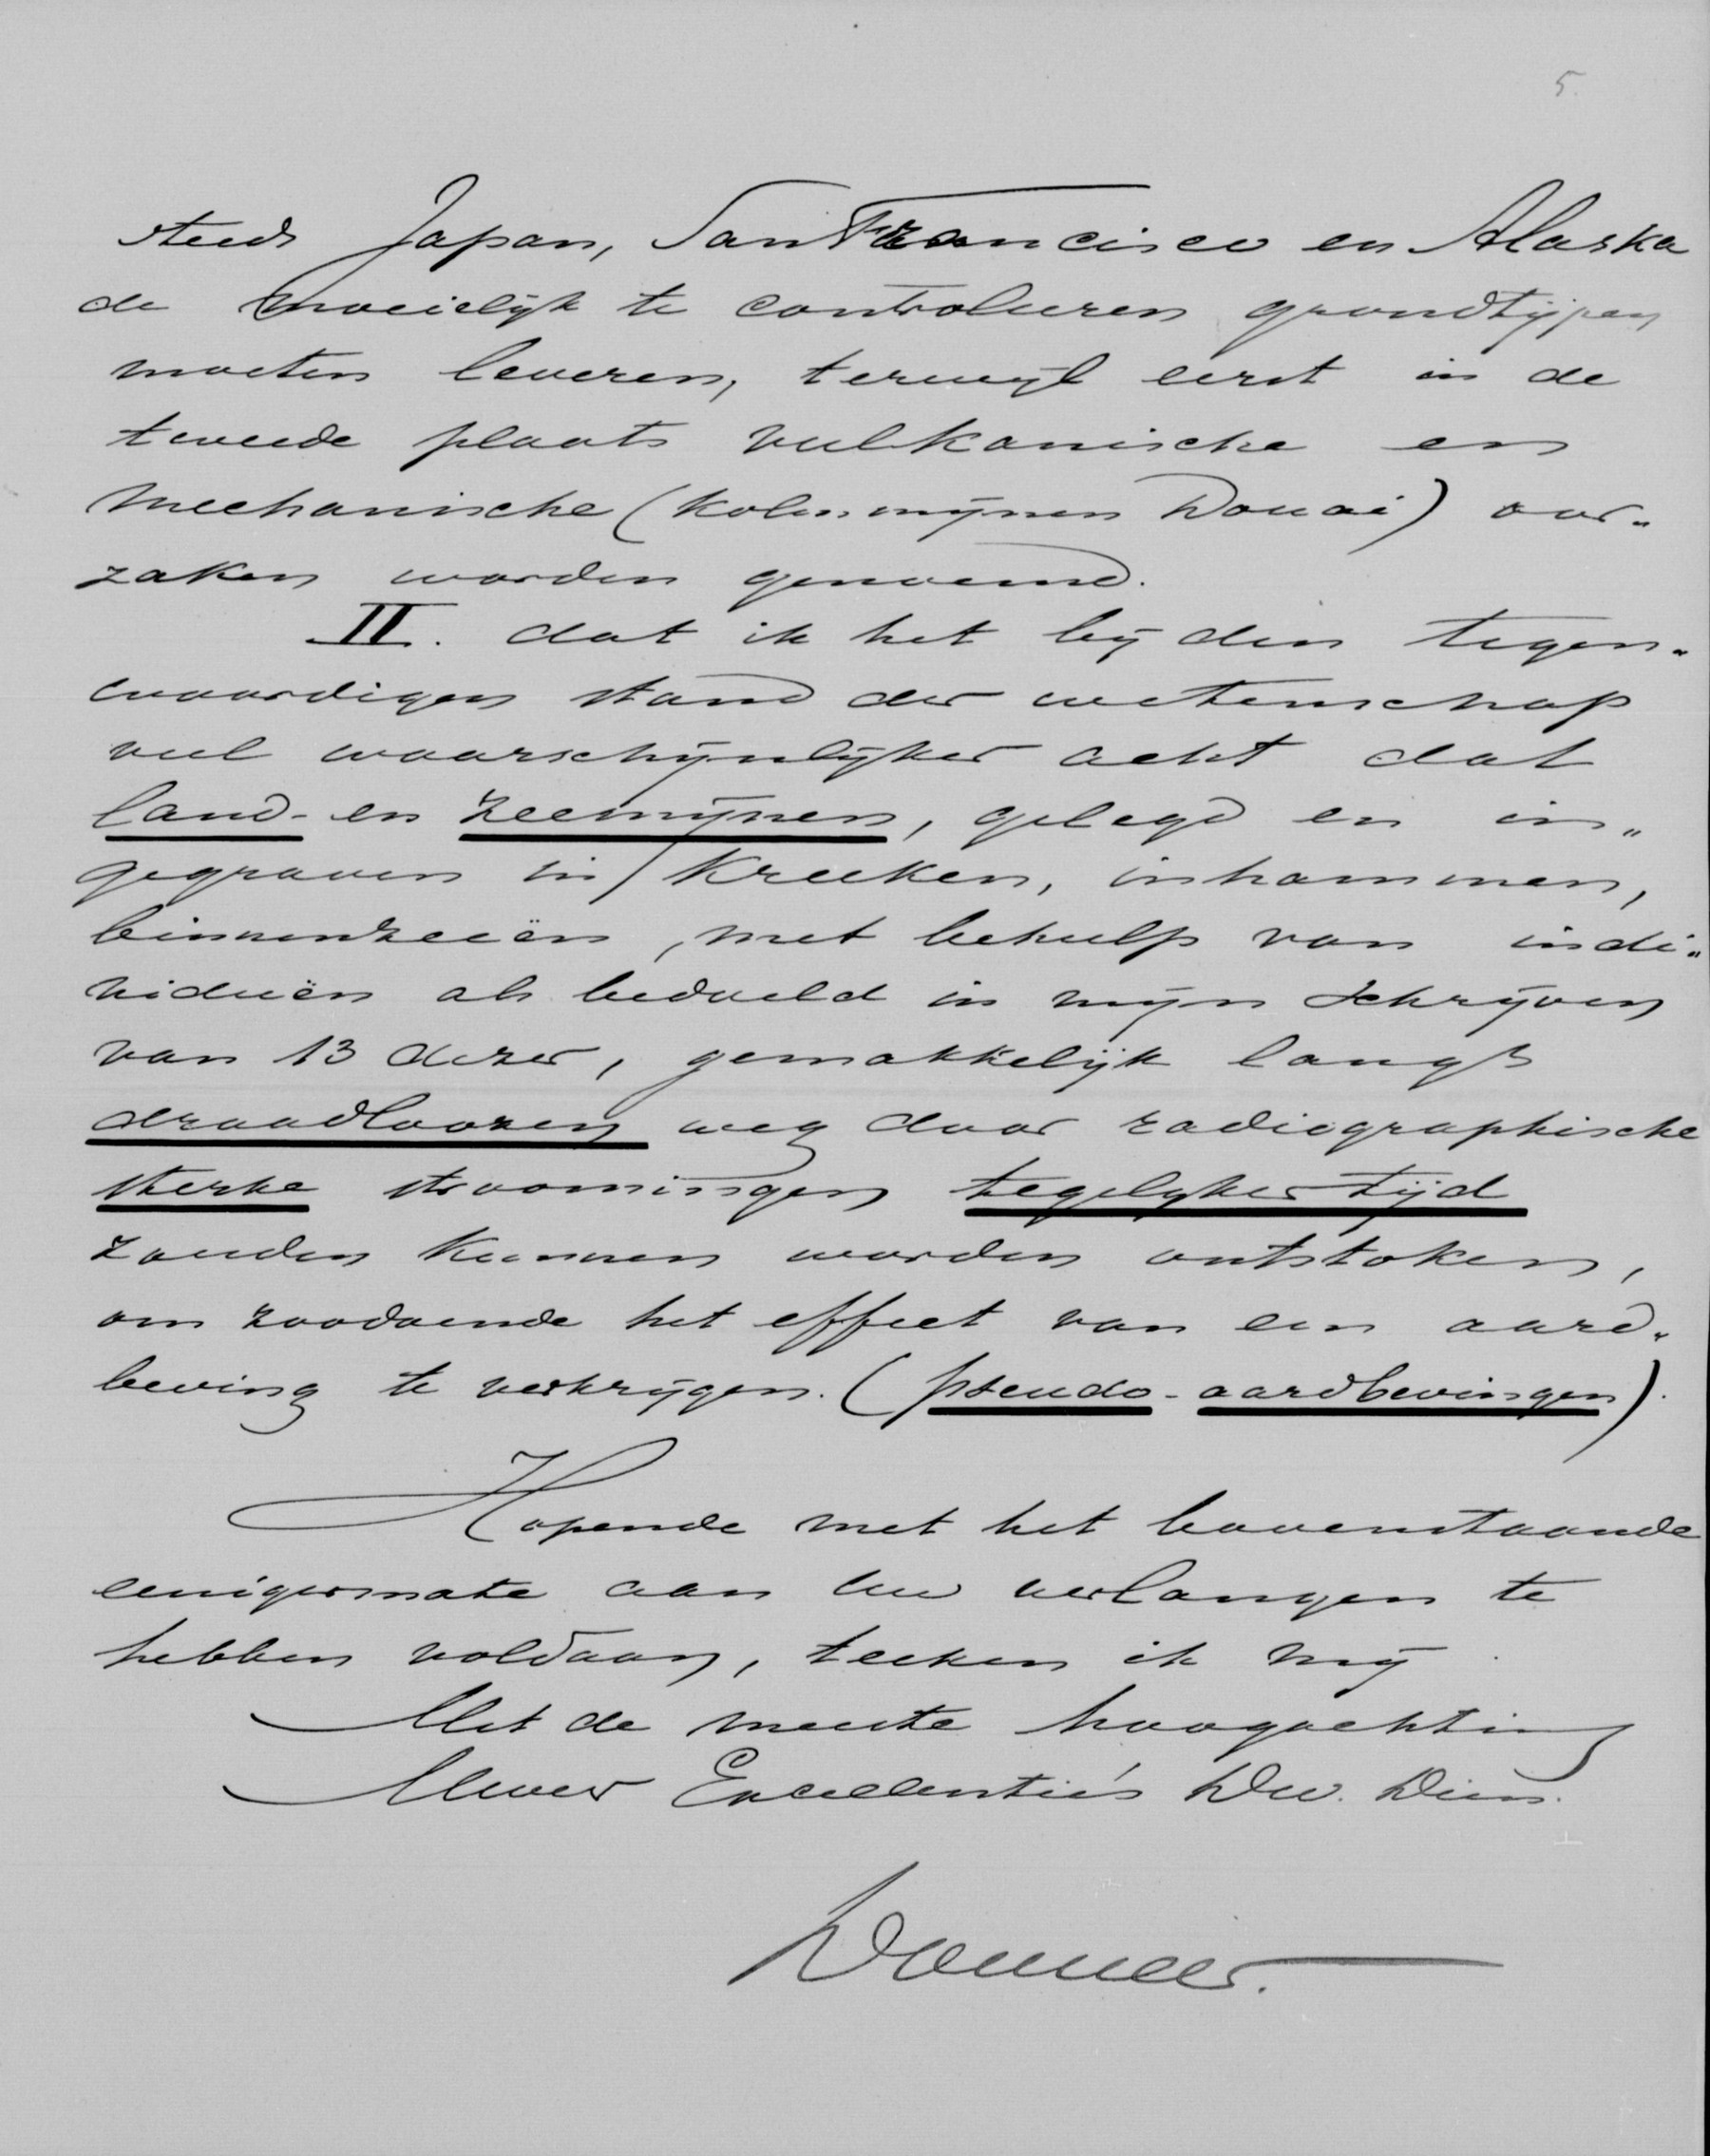 5.
steeds Japan, San Francisco en Alaska
de moeielijk te controleeren grondtijpen
moeten leveren, terwijl eerst in de
tweede plaats vulkanische en
mechanische (kolenmijnen Douai) oor„
zaken worden genoemd.
II. dat ik het bij den tegen„
woordigen stand der wetenschap
veel waarschijnlijker acht dat
land- en zeemijnen, gelegd en in„
gegraven in kreeken, inhammen,
binnenzeeën, met behulp van indi„
viduën als bedoeld in mijn schrijven
van 13 dezer, gemakkelijk langs
draadloozen weg door radiographische
sterke stroomingen tegelijkertijd
zouden kunnen worden ontstoken,
om zoodoende het effect van een aard„
beving te verkrijgen. (pseudo-aardbevingen).
Hopende met het bovenstaande
eenigermate aan uw verlangen te
hebben voldaan, teeken ik mij
Met de meeste hoogachting
Uwer Excellentie's Dw. Dien.